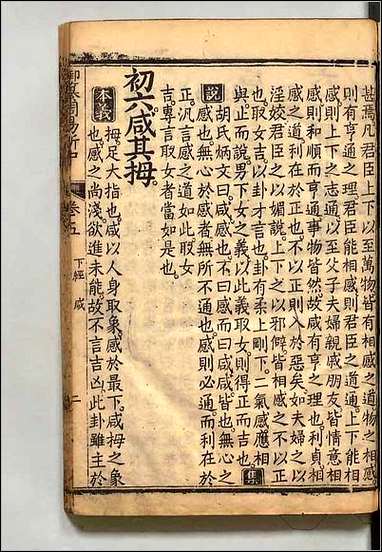 甚焉凡君臣上下以至萬物皆有相感之道物之相感
則有亨通之理君臣能相感則君臣之道通上下能相
感則上下之志通以至父子夫婦親戚朋友皆情意相
感則和順而亨通事物皆然故咸有亨之理也利貞相
感之道利在於正也不以正則入於惡矣如夫婦之以
淫姣君臣之以媚說上下之以邪僻皆相感之不以正
也取女吉以卦才言也卦有柔上剛下二氣感應相
與止而說男下女之義以此義取女則得正而吉也 集
說 胡氏炳文曰咸感也不曰感而曰咸咸皆也無心之
感也無心於感者無所不通也感則必通而利在於
正汎言感之道如此取女
吉專言取女者當如是也
初六咸其拇
本義 拇足大指也咸以人身取象感於最下咸拇之象
也感之尚淺欲進未能故不言吉凶此卦雖主於
御纂周易折中 卷五 下經 咸 二